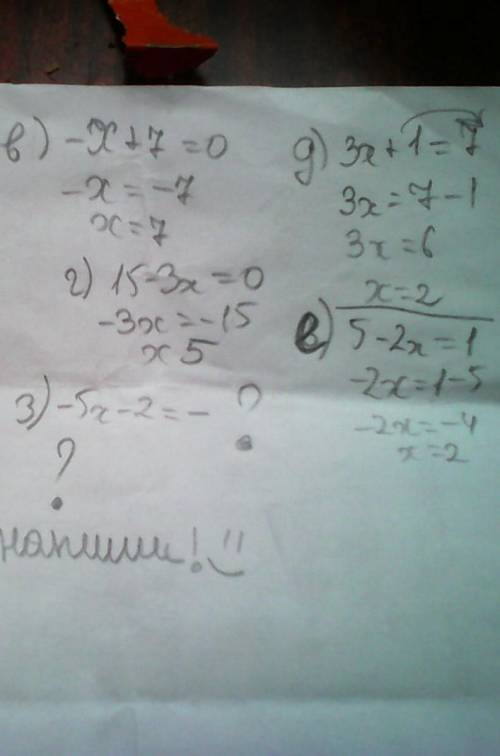 в) -x+7=0
-x=-7
x=7
г) 15-3x=0
-3x=-15
x 5
з) -5x-2=- ?
?
напиши!
д) 3x+1=7
3x=7-1
3x=6
x=2
е) 5-2x=1
-2x=1-5
-2x=-4
x=2